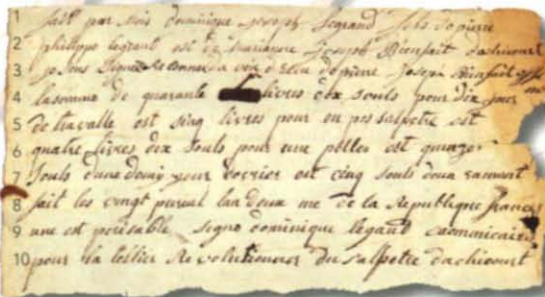 1 fait par mois dominique joseph legrand fils de pierre
2 philippe legrant est de marianne joseph Bienfait dachicourt
3 je sous signe Reconnai a voir Reseu de pierre joseph Bienfait
4 la somme de quarante livres dix souls pour dix jour
5 de travalle est sinq livres pour en pos salpetre est
6 quatre livres dix souls pour une pelles est quinze
7 souls dune demy jour est cinq souls deux
8 fait les vingt lan deux me de la Republique frances
9 une est perisable signe dominique legrant commicaire
10 pour la tellier Revolutionner du salpetre dachicourt